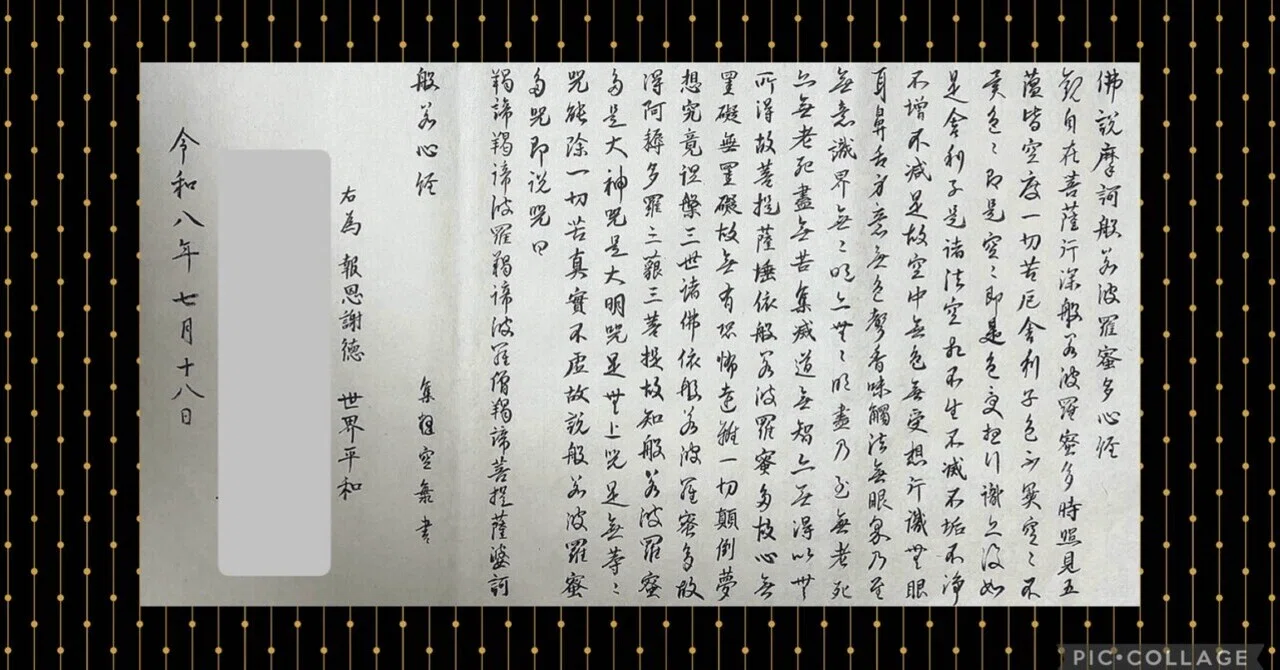 佛説摩訶般若波羅蜜多心経
観自在菩薩行深般若波羅蜜多時照見五
薀皆空度一切苦厄舎利子色不異空〻不
異色〻即是空〻即是色受想行識亦復如
是舎利子是諸法空相不生不滅不垢不浄
不増不減是故空中無色無受想行識無眼
耳鼻舌身意無色声香味觸法無眼界乃至
無意識界無〻明亦無〻明盡乃至無老死
亦無老死盡無苦集滅道無智亦無得以無
所得故菩提薩埵依般若波羅蜜多故心無
罣礙無罣礙故無有恐怖遠離一切顛倒夢
想究竟涅槃三世諸佛依般若波羅蜜多故
得阿耨多羅三藐三菩提故知般若波羅蜜
多是大神咒是大明咒是無上咒是無等〻
咒能除一切苦真實不虚故説般若波羅蜜
多咒即説咒曰
羯諦羯諦波羅羯諦波羅僧羯諦菩提薩婆訶
般若心経
集 空無書
右為 報恩謝徳 世界平和
令和八年七月十八日
PIC•COLLAGE